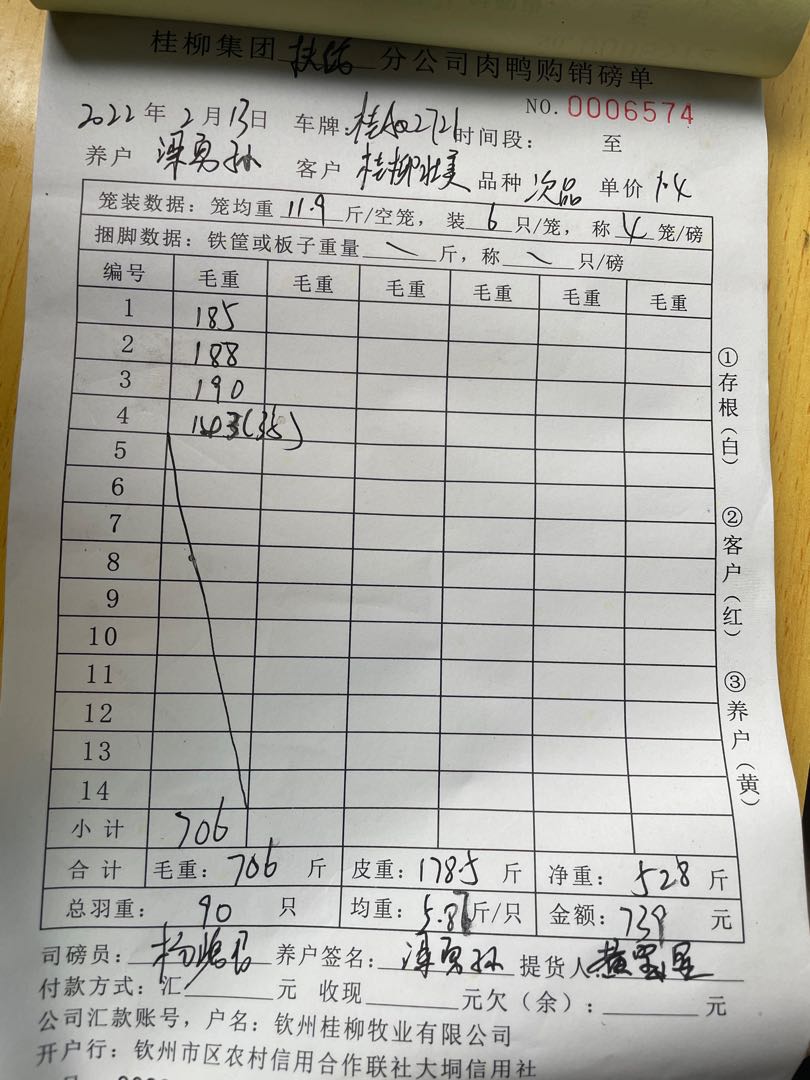 桂柳集团扶绥分公司肉鸭购销磅单
NO.0006574
2022年2月13日 车牌:桂A02721时间段: 至
养户 客户 桂柳壮美 品种 次品 单价 1.4
笼装数据:笼均重 11.9 斤/空笼,装 6 只/笼,称 4 笼/磅
捆脚数据:铁筐或板子重量 \ 斤,称 \ 只/磅
编号 毛重 毛重 毛重 毛重 毛重 毛重
1 185
2 188
3 190
4
5
6
7
8
9
10
11
12
13
14
小计 706
合计 毛重:706 斤 皮重:178.5 斤 净重:528 斤
总羽重: 90 只 均重: 斤/只 金额:739 元
司磅员: 养户签名: 提货人:
付款方式:汇 元 收现 元欠(余): 元
公司汇款账号,户名:钦州桂柳牧业有限公司
开户行:钦州市区农村信用合作联社大垌信用社
①存根(白)
②客户(红)
③养户(黄)